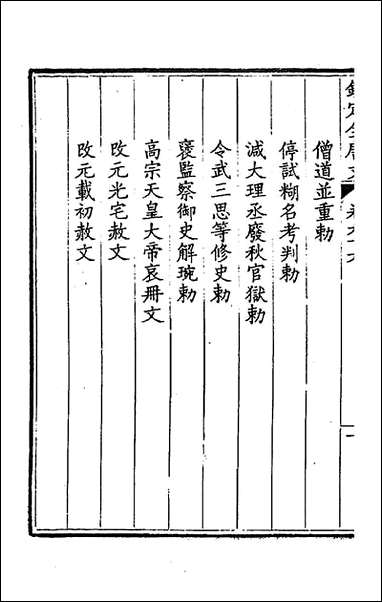 欽定全唐文
僧道並重勅
停試糊名考判勅
減大理丞廢秋官獄勅
令武三思等修史勅
褒監察御史解琬勅
高宗天皇大帝哀冊文
改元光宅赦文
改元載初赦文